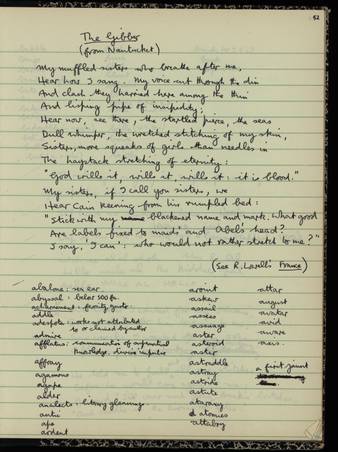 52
The Gibber
(from Nantucket)
My muffled sisters who breathe after me,
Hear how I sang. My voice cut through the din
And clash they harried here among the thin
And lisping pipe of insipidity:
Hear now, see there, the startled pierce, the seas
Dull whimper, the wretched stitching of my skin,
Sisters, more squeaks of girls than needles in
The haystack stretching of eternity:
"God wills it, wills it, wills it: it is blood."
My sisters, if I call you sisters, we
Hear Cain keening from his rumpled bed:
"Stick with my blackened name and mark. What good
Are labels fixed to maids' and Abel's head?
I say, 'I can': who would not rather stretch to me?"
(See R. Lowell's France)
abalone: sea ear
abyssal: below 300 fm.
achievement: family, gests
addle
adespota: works not attributed
to or claimed by author
admire
afflatus: communication of supernatural
knowledge, divine impulse
affray
agamous
agape
alder
analects: literary gleanings
antic
apse
ardent
aroint
askew
assail
assess
assuage
aster
asteroid
aster
astraddle
astray
astride
astute
ataraxy
atomies
attaboy
attar
august
avatar
avid
aware
axis
a first joint